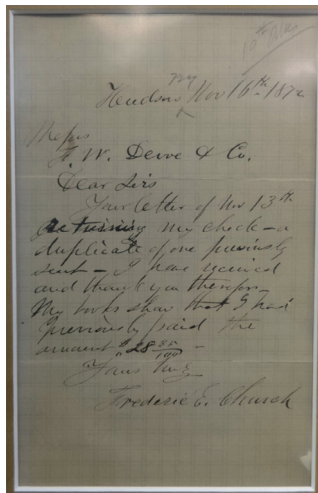 Hudson NY Nov 16th 187
Messrs
F. W. Devoe & Co.
Dear Sirs
Your letter of Nov 13th
returning my check – a
duplicate of one previously
sent – I have received
and thank you therefor –
My books show that I had
previously paid the
amount $28 85/100 –
Yours truly
Frederic E. Church